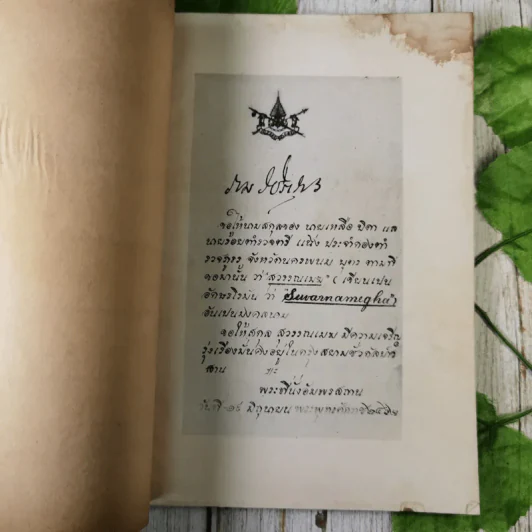 ขอให้นามสกุลของ นายเหลือ บิดา แล
นายร้อยตำรวจตรี แม้น ประจำกองตำ
รวจภูธร จังหวัดนครพนม บุตร ตามที่
ขอมานั้น ว่า "สุวรรณเมฆ" (เขียนเปน
อักษรโรมัน ว่า "Suvarnamegha")
อันเปนมงคลนาม
ขอให้สกุล สุวรรณเมฆ มีความเจริญ
รุ่งเรืองมั่นคงอยู่ในกรุงสยามชั่วกัลปาว
สาน
พระที่นั่งอัมพรสถาน
วันที่ มิถุนายน พระพุทธศักราช